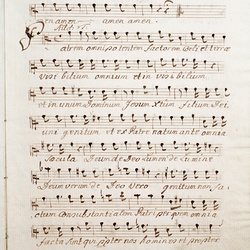 en amen amen amen.
Patrem omnipotentem factorem coeli et terrae
visibilium omnium et in visibilium
et in unum Dominum Jesum Xtum filium Dei
uni genitum et ex Patre natum ante omnia
saecula Deum de Deo Lumen de Lumine
Deum verum de Deo vero genitum non fa-
ctum Consubstantialem Patri per quem omnia
facta sunt qui propter nos homines et propter